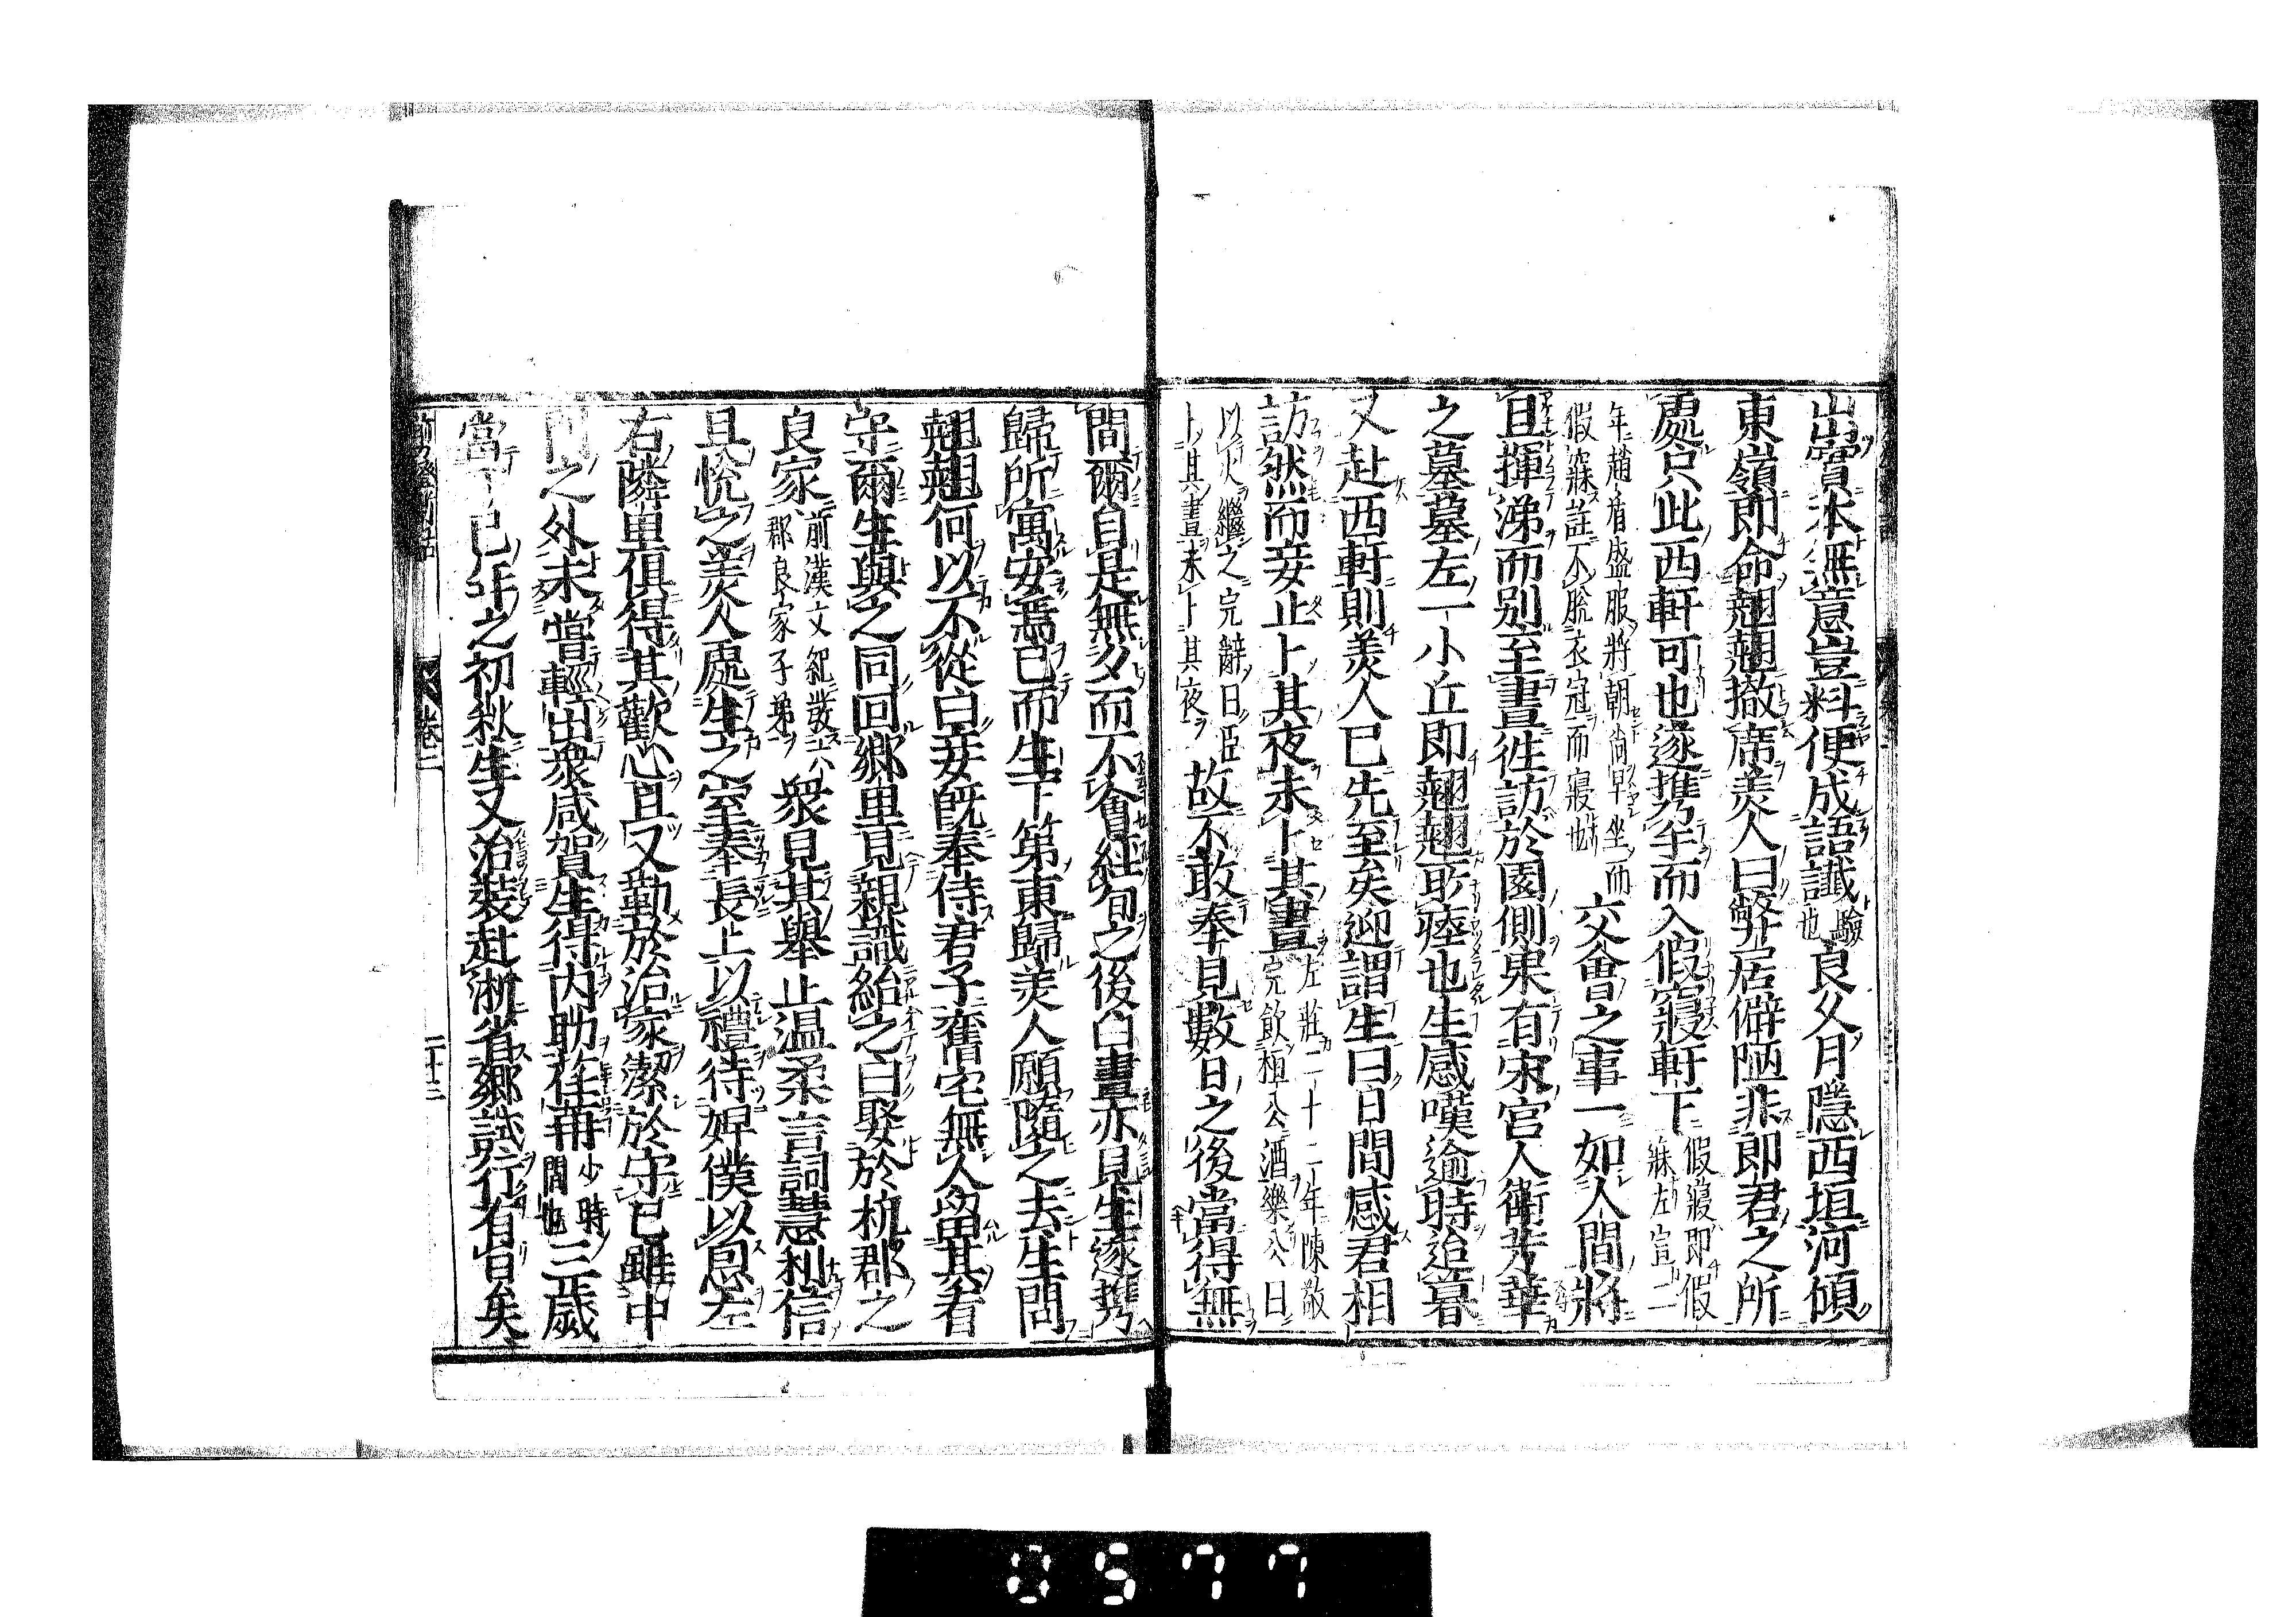 出實本無意豈料便成語讖驗也良久月隱西垣河傾
東嶺即命翹翹撤席羙人曰弊居僻陋非即君之所
處只此西軒可也遂携手而入假寢軒下假寢即假寐左宣二
年趙盾盛服將朝尚早坐而假寐註不脫衣冠而寢也交會之事一如人間將
旦揮涕而别至晝徃訪於園側果有宋宮人衛芳華
之墓墓左一小丘即翹翹所瘞也生感嘆逾時迨暮
又赴西軒則羙人已先至矣迎謂生曰日間感君相
訪然而妾止卜其夜未卜其晝左莊二十二年陳敬完飲桓公酒樂公曰
以火繼之完辭曰臣卜其晝未卜其夜故不敢奉見數日之後當得無
間爾自是無夕而不會經旬之後白晝亦見生遂携
歸所寓安焉已而生下第東歸羙人願隨之去生問
翹翹何以不從曰妾旣奉侍君子舊宅無人留其看
守爾生與之同回鄉里見親識紿之曰娶於杭郡之
良家前漢文紀發六郡良家子弟衆見其舉止温柔言詞慧利信
且悅之羙人處生之室奉長上以禮待婢僕以恩左
右隣里俱得其歡心且又勤於治家潔於守已雖中
門之外未嘗輕出衆咸賀生得内助荏苒少時間也三歲
當丁巳年之初秋生又治裝赴浙省鄉試行有日矣
卷二
二十三
0577